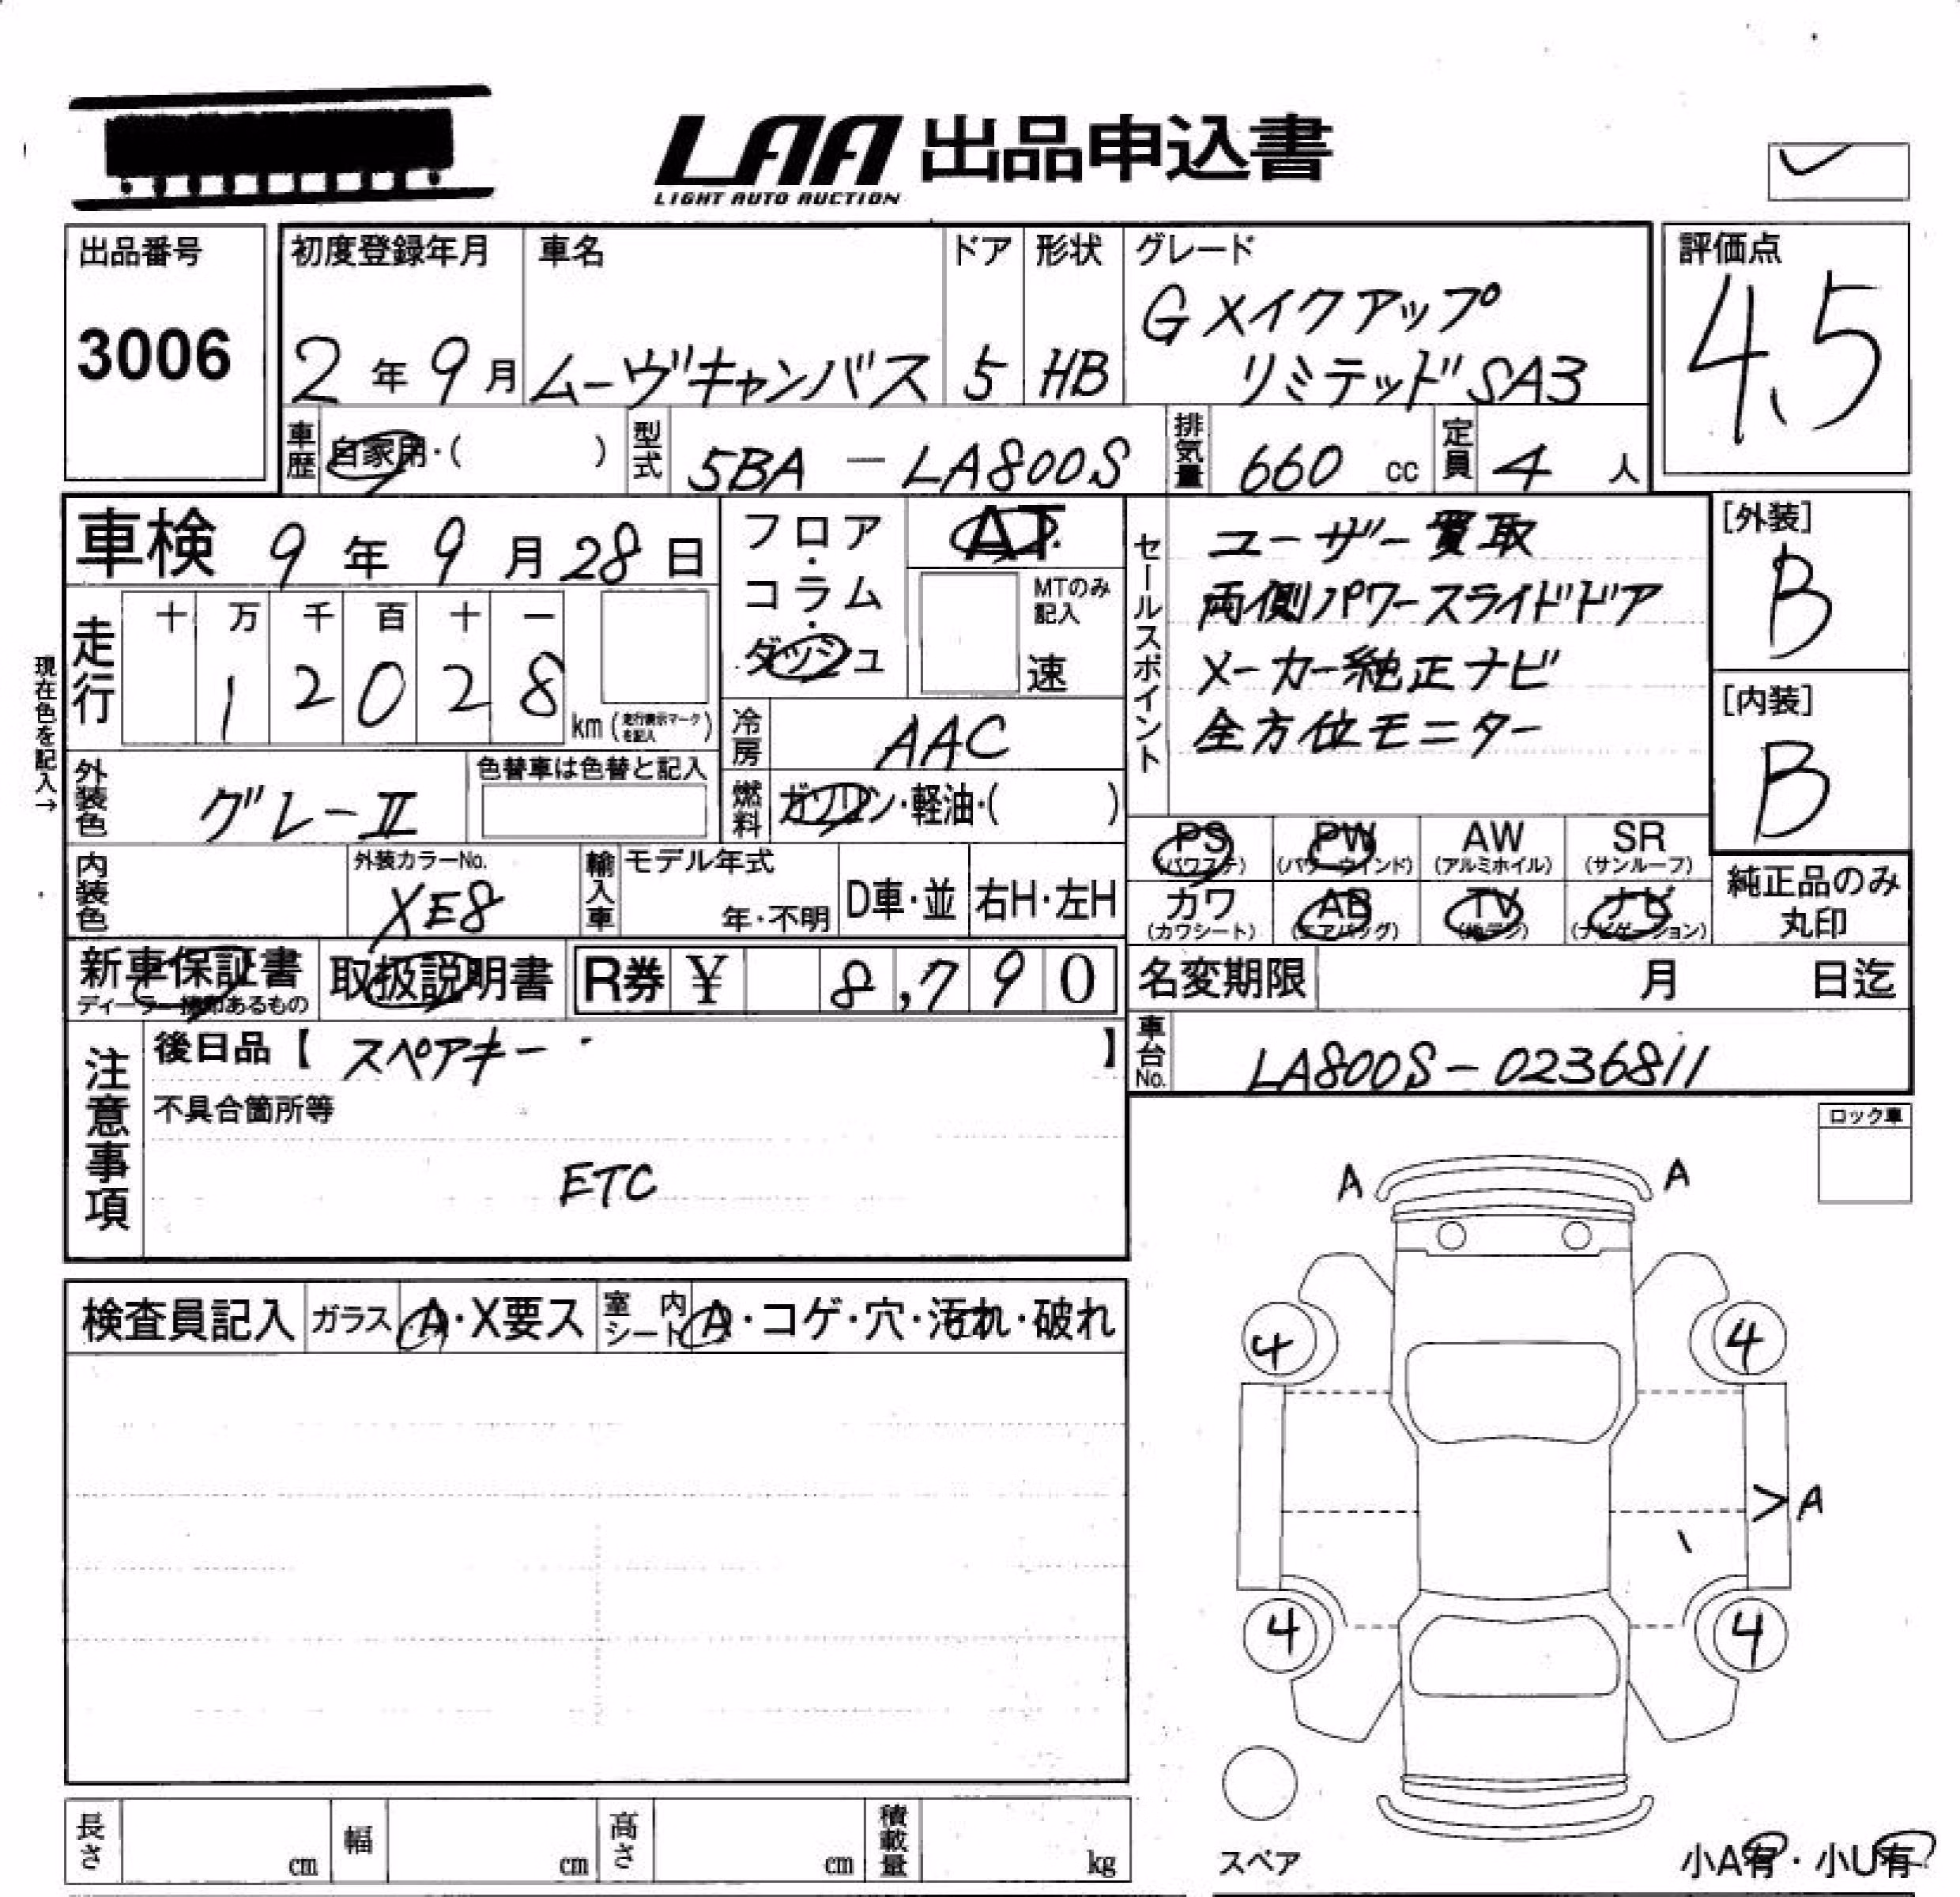 LAA 出品申込書
LIGHT AUTO AUCTION
出品番号
3006
初度登録年月
2年9月
車名
ムーヴキャンバス
ドア
5
形状
HB
グレード
Gメイクアップ
リミテッドSA3
評価点
4.5
車歴
自家用・( )
型式
5BA - LA800S
排気量
660 cc
定員
4人
車検 9年9月28日
走行
十 万 千 百 十 一
1 2 0 2 8
km (走行表示マークを記入)
現在色を記入→
フロア・コラム・ダッシュ
AT
MTのみ記入
速
冷房
AAC
燃料
ガソリン・軽油・( )
セールスポイント
ユーザー買取
両側パワースライドドア
メーカー純正ナビ
全方位モニター
[外装]
B
[内装]
B
外装色
グレーII
色替車は色替と記入
内装色
外装カラーNo.
XE8
輸入車
モデル年式
年・不明
D車・並
右H・左H
PS (パワステ)
PW (パワーウインド)
AW (アルミホイル)
SR (サンルーフ)
カワ (カワシート)
AB (エアバッグ)
TV (地デジ)
ナビ (ナビゲーション)
純正品のみ丸印
新車保証書
ディーラー捺印あるもの
取扱説明書
R券 ¥ 8,790
名変期限 月 日迄
車台No.
LA800S-0236811
注意事項
後日品【 スペアキー 】
不具合箇所等
ETC
ロック車
検査員記入
ガラス A・X要ス
室内シート A・コゲ・穴・汚れ・破れ
A A
4 4
A
4 4
スペア
小A有・小U有
長さ cm
幅 cm
高さ cm
積載量 kg